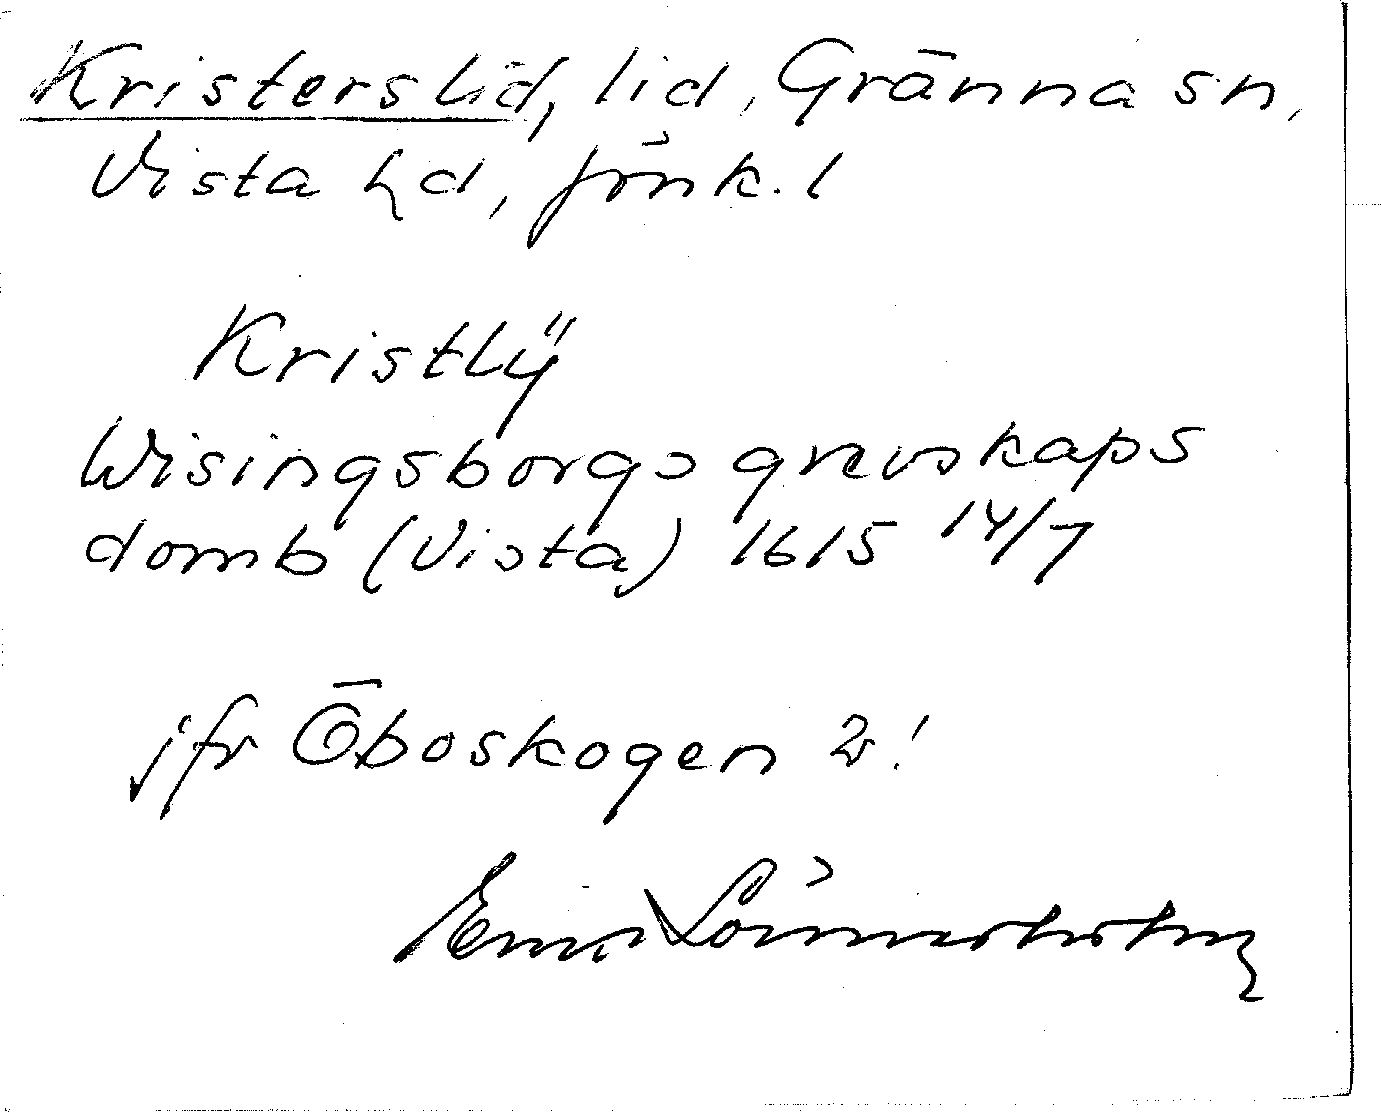 Kristerslid, lid, Gränna sn,
Vista hd, Jönk. l
Kristlÿ
Wisingsborgs grevskaps
domb (Vista) 1615 14/7
jfr Öboskogen 2!